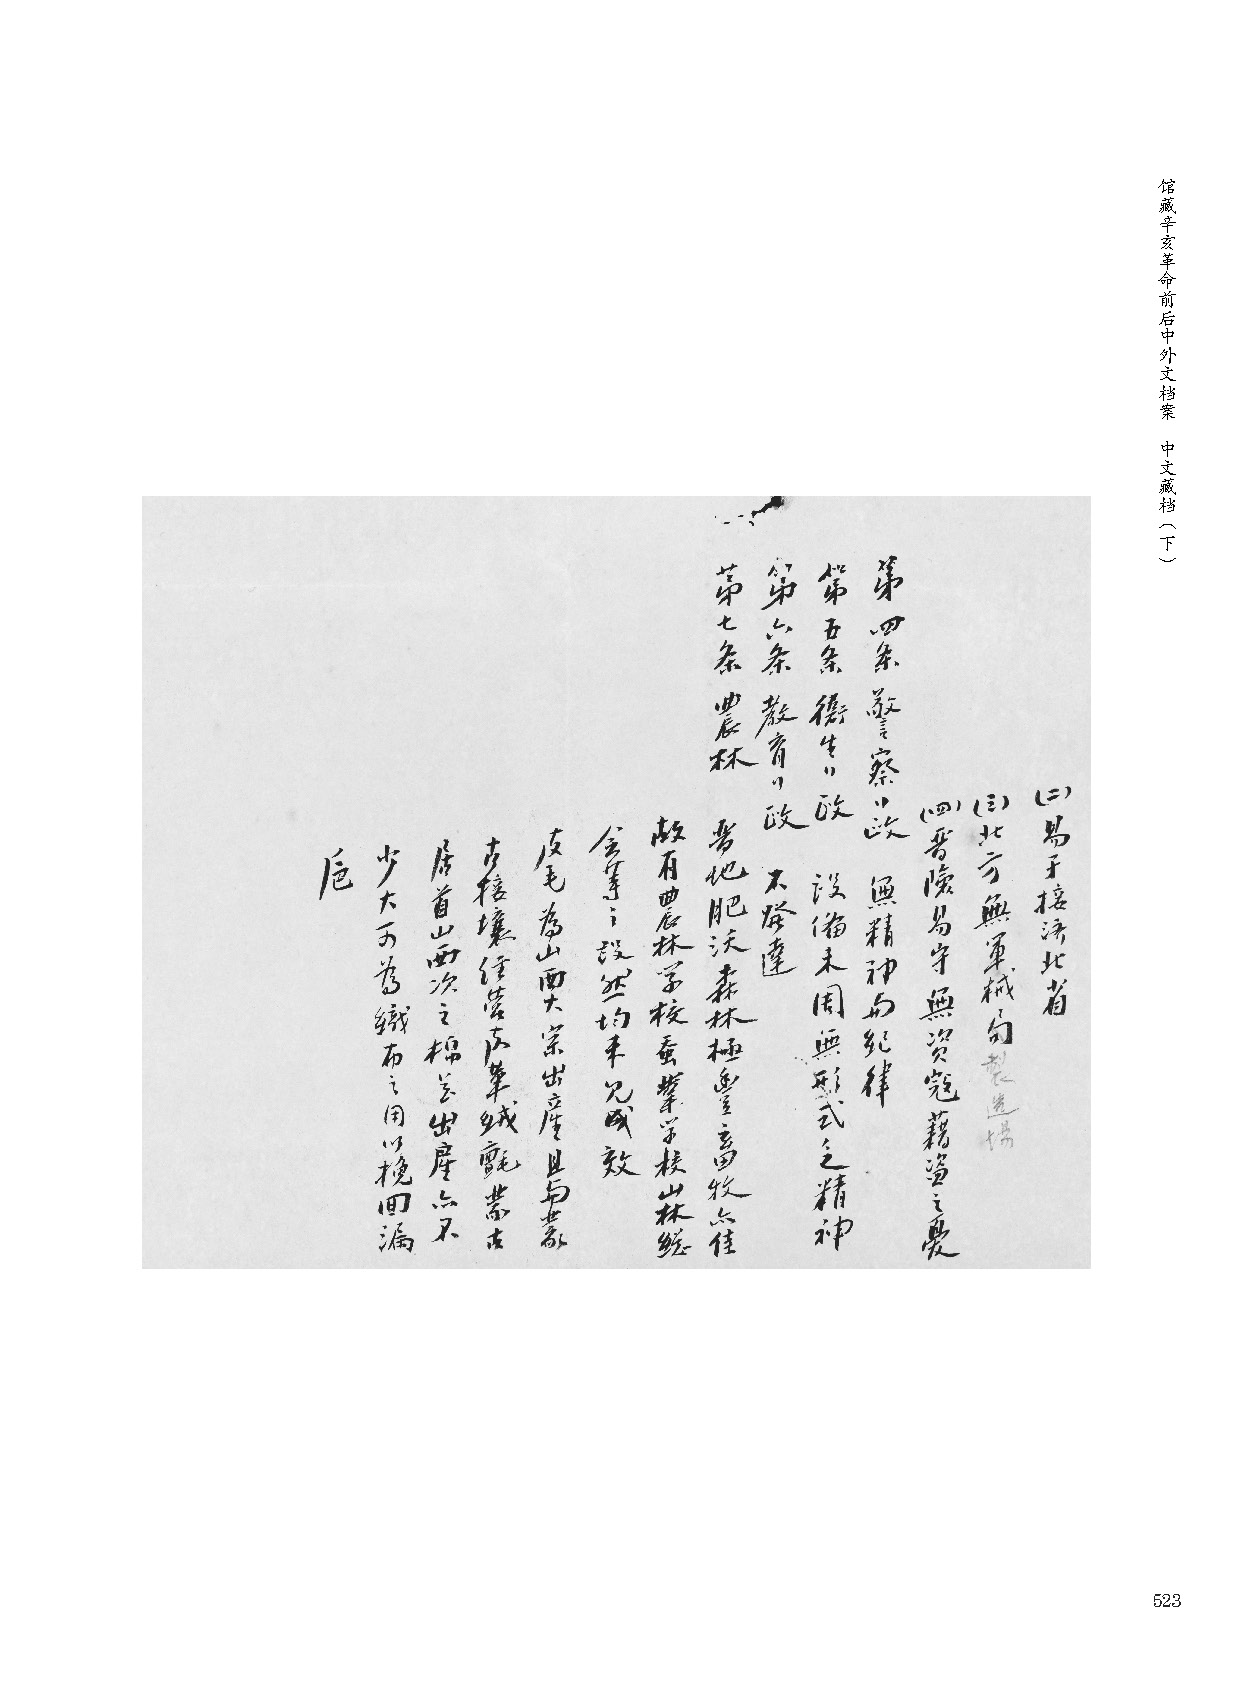 馆藏辛亥革命前后中外文档案 中文藏档（下）
(二)易于接济北省
(三)北方無軍械局製造場
(四)晋險易守無资寇藉盗之憂
第四条 警察〃政 無精神与紀律
第五条 衛生〃政 設備未周無形式之精神
第六条 教育〃政 不發達
第七条 農林 晋地肥沃森林極豐畜牧亦佳
故有農林学校蚕業学校山林総
会等之設然均未见成效
皮毛為山西大宗出産且与蒙
古接壤经营皮革絨氈蒙古
居首山西次之棉花出産亦不
少大可為織布之用以挽回漏
卮
523